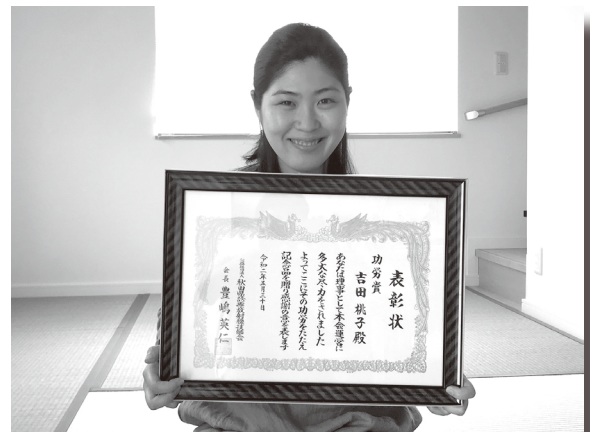 表彰状
功労賞
吉田桃子殿
あなたは理事として本会運営に
多大な尽力をされました
よってここにその功労をたたえ
記念品を贈り感謝の意を表します
令和二年五月三十日
公益社団法人 秋田県診療放射線技師会
会長 豊嶋英仁